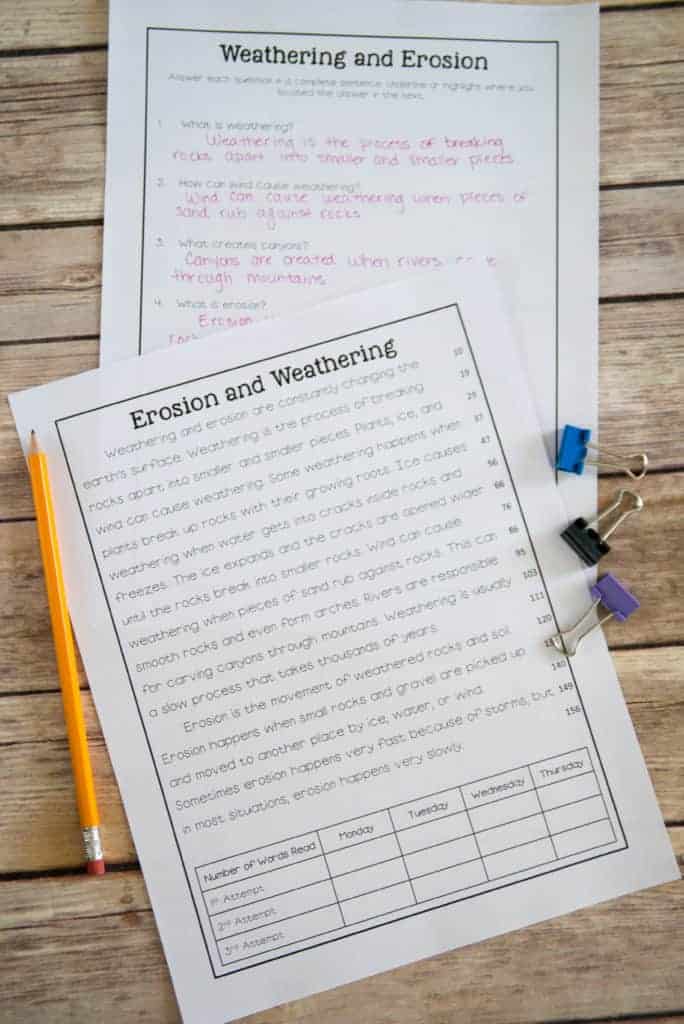 Weathering and Erosion
Answer each question in a complete sentence. Underline or highlight where you
located the answer in the text.
1. What is weathering?
Weathering is the process of breaking
rocks apart into smaller and smaller pieces.
2. How can wind cause weathering?
Wind can cause weathering when pieces of
sand rub against rocks.
3. What creates canyons?
Canyons are created when rivers
through mountains.
4. What is erosion?
Erosion
Erosion and Weathering
Weathering and erosion are constantly changing the 10
earth's surface. Weathering is the process of breaking 19
rocks apart into smaller and smaller pieces. Plants, ice, and 29
wind can cause weathering. Some weathering happens when 37
plants break up rocks with their growing roots. Ice causes 47
weathering when water gets into cracks inside rocks and 56
freezes. The ice expands and the cracks are opened wider 66
until the rocks break into smaller rocks. Wind can cause 76
weathering when pieces of sand rub against rocks. This can 86
smooth rocks and even form arches. Rivers are responsible 95
for carving canyons through mountains. Weathering is usually 103
a slow process that takes thousands of years. 111
Erosion is the movement of weathered rocks and soil. 120
Erosion happens when small rocks and gravel are picked up
and moved to another place by ice, water, or wind. 140
Sometimes erosion happens very fast because of storms, but 149
in most situations, erosion happens very slowly. 156
Number of Words Read Monday Tuesday Wednesday Thursday
1st Attempt
2nd Attempt
3rd Attempt